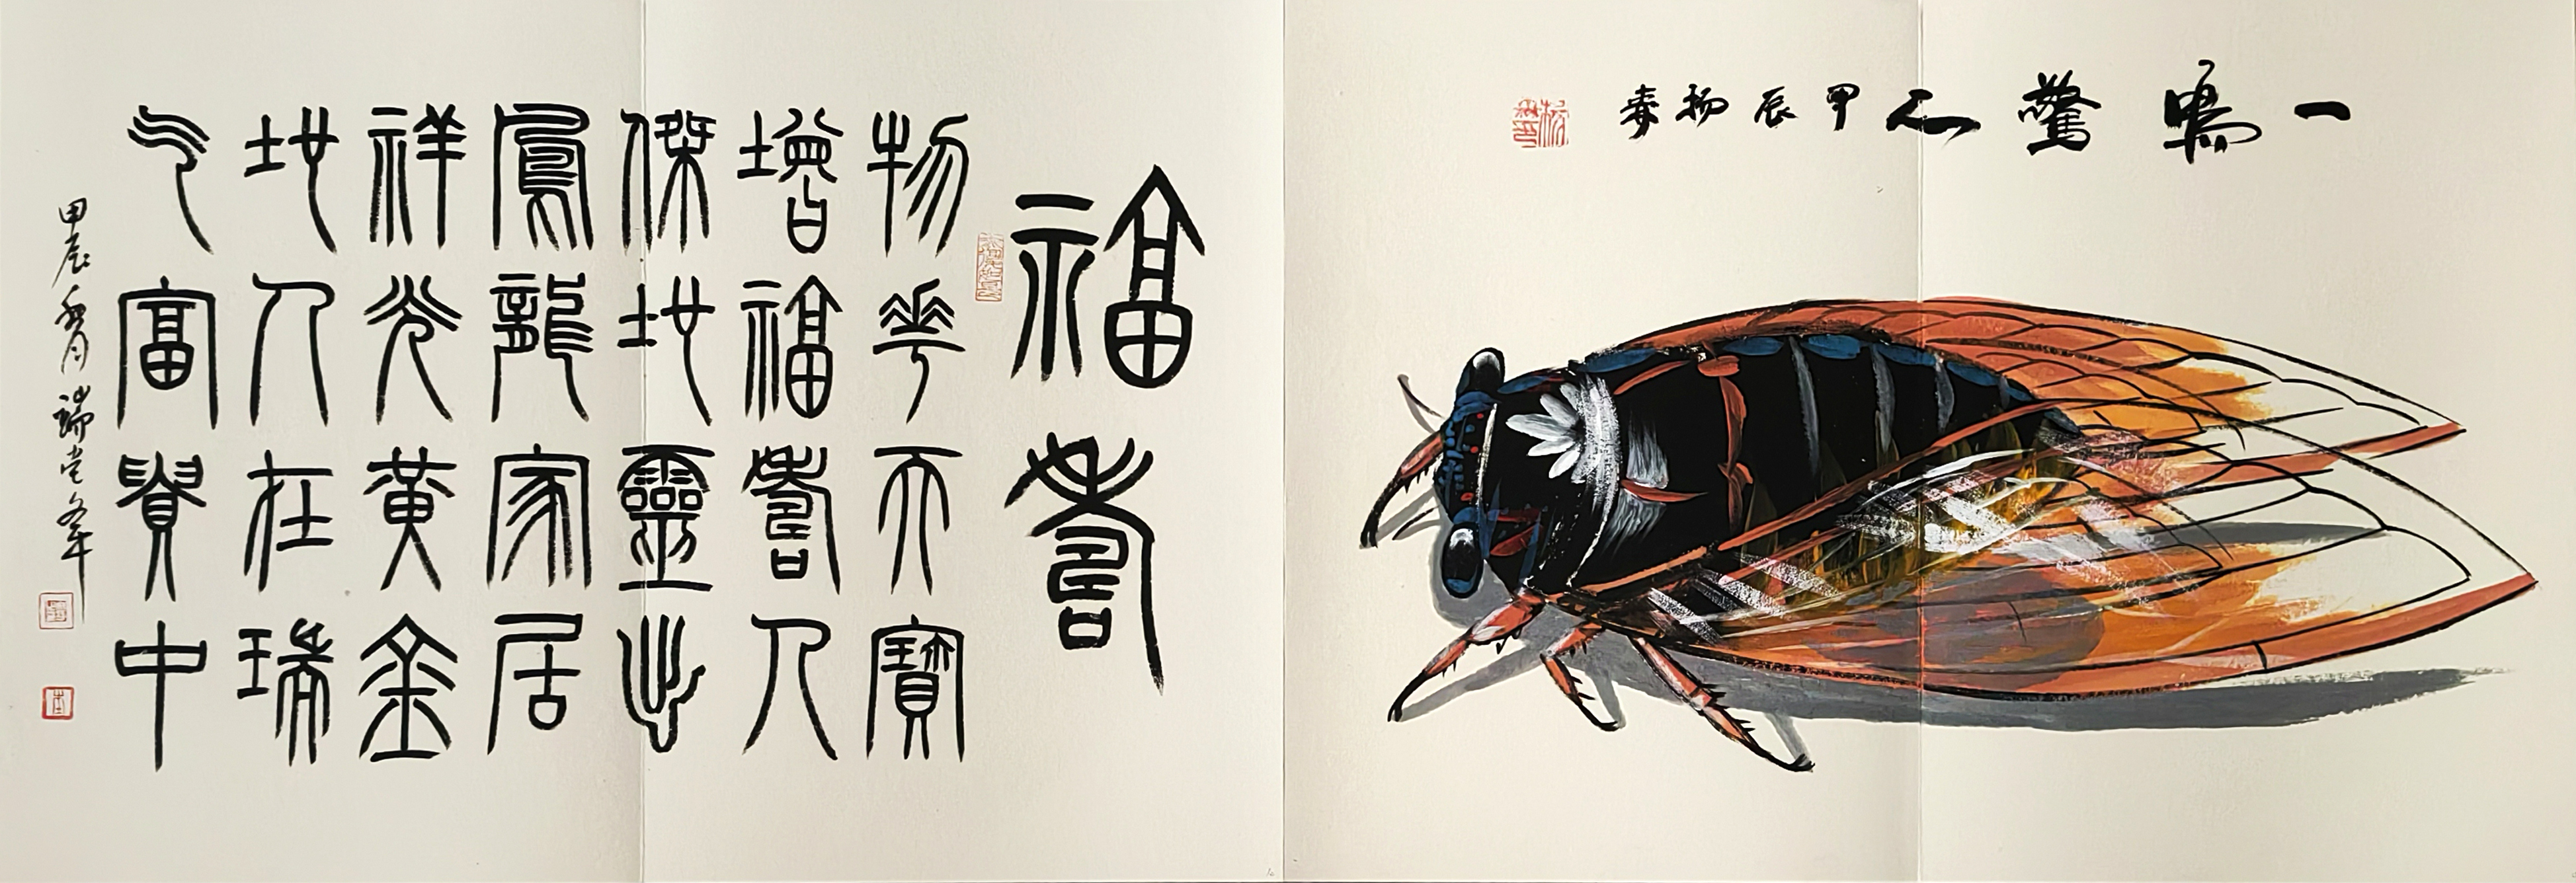 一鳴驚人 甲辰
福壽
物華天寶
增福壽人
傑地靈出
鳳龍家居
祥光黃金
地人在瑞
气富貴中
甲辰夏月